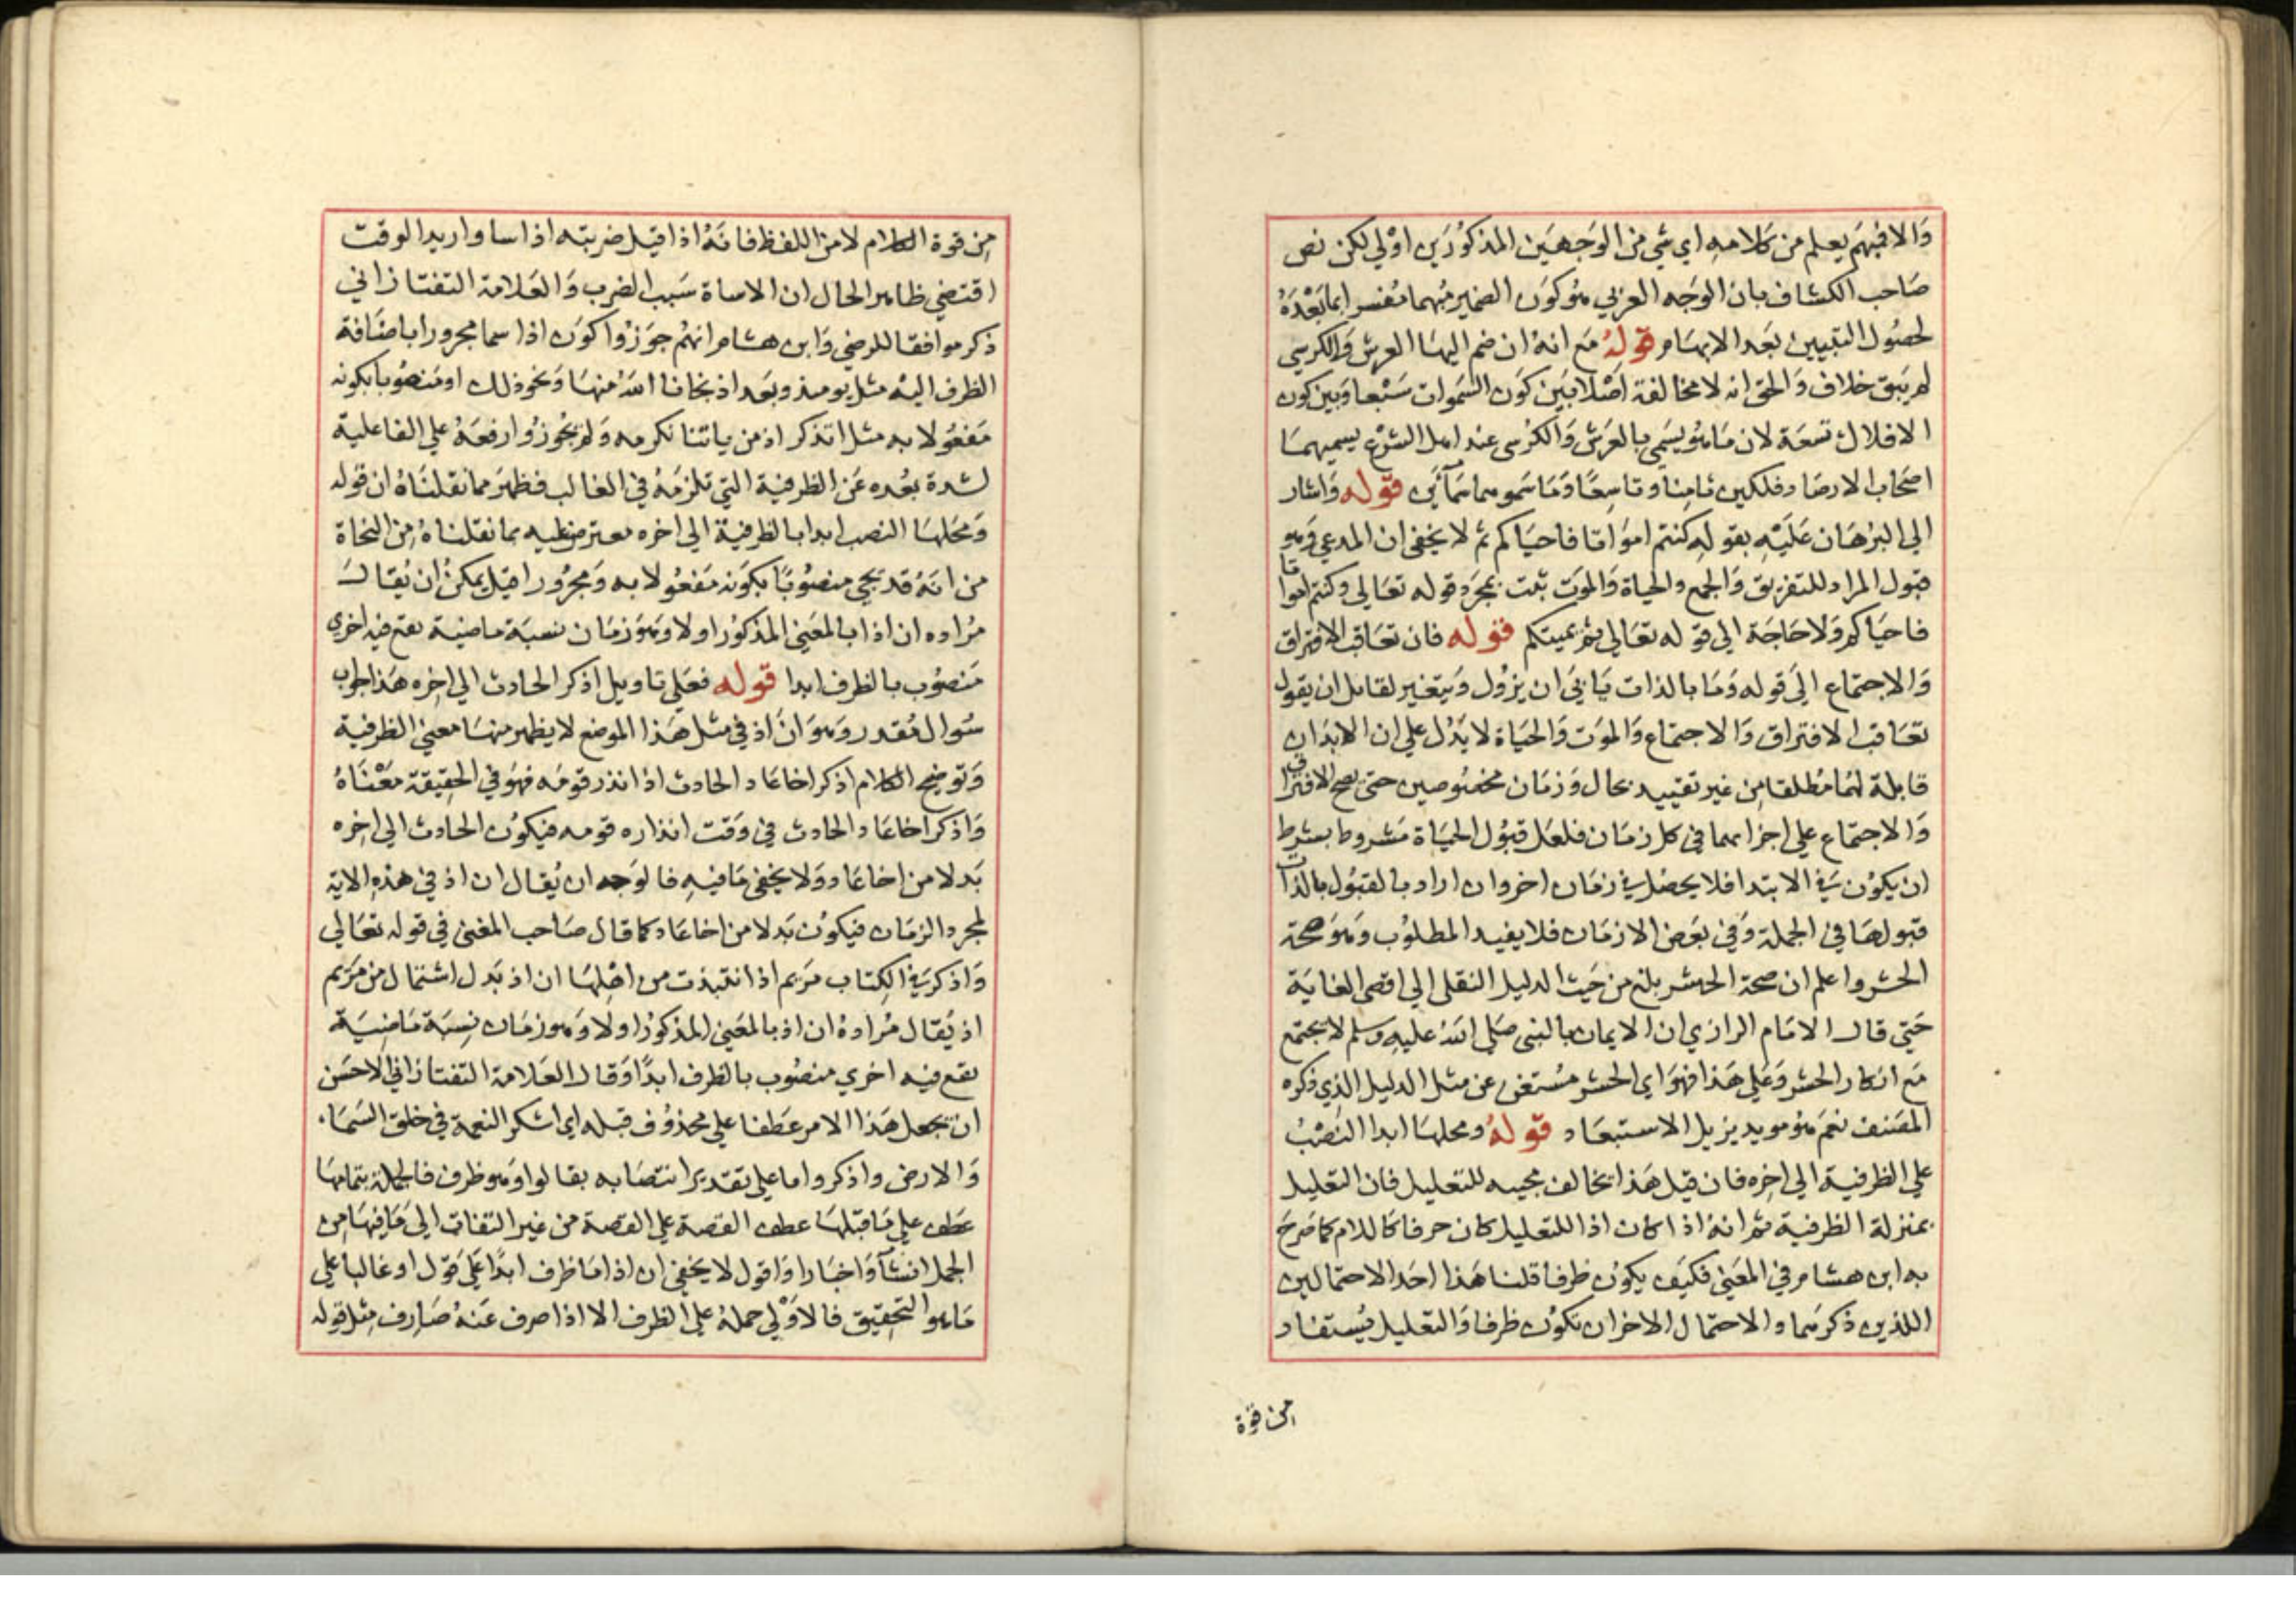 والا فبهم يعلم من كلامه اي شي من الوجهين المذكورين اولي لكن نص
صاحب الكشاف بان الوجه العربي هو كون الضمير مبهما مفسرا بما بعده
لحصول التبيين بعد الابهام قوله مع انه ان ضم اليها العرش والكرسي
لم يبق خلاف والحق انه لا مخالفة اصلا بين كون السموات سبعا وبين كون
الافلاك تسعة لان ما هو يسمي بالعرش والكرسي عند اهل الشرع يسميهما
اصحاب الارصاد فلكين ثامنا وتاسعا وما سموهما سمائين قوله واشار
الي البرهان عليه بقوله كنتم امواتا فاحياكم ثم لا يخفي ان المدعي وهو
قبول المراد للتفريق والجمع والحياة والموت ثبت بمجرد قوله تعالي وكنتم امواتا
فاحياكم ولا حاجة الي قوله تعالي ثم يميتكم قوله فان تعاقب الافتراق
والاجتماع الي قوله وما بالذات يابي ان يزول ويتغير لقايل ان يقول
تعاقب الافتراق والاجتماع والموت والحياة لا يدل علي ان الابدان
قابلة لهما مطلقا من غير تقييد بحال وزمان مخصوصين حتي يصح الافتراق
والاجتماع علي اجزايهما في كل زمان فلعل قبول الحياة مشروط بشرط
ان يكون في الابتدا فلا يحصل في زمان اخر وان اراد بالقبول بالذات
قبولها في الجملة وفي بعض الازمان فلا يفيد المطلوب وهو صحة
الحشر واعلم ان صحة الحشر بلغ من حيث الدليل النقلي الي اقصي الغاية
حتي قال الامام الرازي ان الايمان بالنبي صلي الله عليه وسلم لا يجتمع
مع انكار الحشر وعلي هذا فهو اي الحشر مستغن عن مثل الدليل الذي ذكره
المصنف نعم هو مويد يزيل الاستبعاد قوله ومحلها ابدا النصب
علي الظرفية الي اخره فان قيل هذا يخالف مجيه للتعليل فان التعليل
بمنزلة الظرفية ثم انه اذا كان اذ للتعليل كان حرفا كاللام كما صرح
به ابن هشام في المغني فكيف يكون ظرفا قلنا هذا احد الاحتمالين
اللذين ذكرهما والاحتمال الاخر ان تكون ظرفا والتعليل يستفاد
من قوة
من قوة الكلام لا من اللفظ فانه اذا قيل ضربته اذ اسا واريد الوقت
اقتضي ظاهر الحال ان الاساة سبب الضرب والعلامة التفتازاني
ذكر موافقا للرضي وابن هشام انهم جوزوا كون اذ اسما مجرورا باضافة
الظرف اليه مثل يومئذ وبعد اذ نجانا الله منها ونحو ذلك او منصوبا بكونه
مفعولا به مثل اتذكر اذ من ياتنا نكرمه ولم يجوزوا رفعه علي الفاعلية
لشدة بعده عن الظرفية التي تلزمه في الغالب فظهر مما نقلناه ان قوله
ومحلها النصب ابدا بالظرفية الي اخره معترض عليه بما نقلناه من النحاة
من انه قد يجي منصوبا بكونه مفعولا به ومجرورا قيل يمكن ان يقال
مراده ان اذ بالمعني المذكور اولا وهو زمان نسبة ماضية تقع فيه اخري
منصوب بالظرف ابدا قوله فعلي تاويل اذكر الحادث الي اخره هذا جواب
سوال مقدر وهو ان اذ في مثل هذا الموضع لا يظهر منها معني الظرفية
وتوضيح الكلام اذكر اخا عاد الحادث اذ انذر قومه فهو في الحقيقة معناه
واذكر اخا عاد الحادث في وقت انذاره قومه فيكون الحادث الي اخره
بدلا من اخا عاد ولا يخفي ما فيه فالوجه ان يقال ان اذ في هذه الاية
لمجرد الزمان فيكون بدلا من اخا عاد كما قال صاحب المغني في قوله تعالي
واذكر في الكتاب مريم اذ انتبذت من اهلها ان اذ بدل اشتمال من مريم
اذ يقال مراده ان اذ بالمعني المذكور اولا وهو زمان نسبة ماضية
تقع فيه اخري منصوب بالظرف ابدا وقال العلامة التفتازاني الاحسن
ان يجعل هذا الامر عطفا علي محذوف قبله اي اشكر النعمة في خلق السماء
والارض واذكر واما علي تقدير انتصابه بقالوا وهو ظرف فالجملة بتمامها
عطف علي ما قبلها عطف القصة علي القصة من غير التفات الي ما فيها من
الجمل انشآ واخبارا واقول لا يخفي ان اذ اما ظرف ابدا علي قول او غالبا علي
ما هو التحقيق فالاولي حمله علي الظرف الا اذا صرف عنه صارف مثل قوله